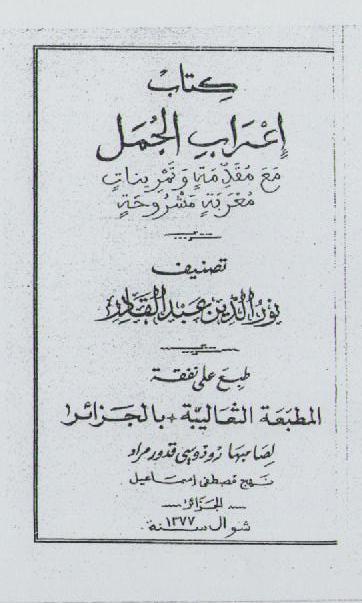 كِتَابْ
إِعْرَابِ الجُمَلِ
مَعَ مُقَدِّمَةٍ وَتَمْرِينَاتٍ
مُعْرَبَةٍ مَشْرُوحَةٍ
تصنيف
نورالدين عبد القادر
طبع على نفقة
المطبعة الثعالبية بالجزائر
لصاحبها رودوسي قدور مراد
نهج مصطفى إسماعيل
الجزائر
شوال سنة ١٣٧٧